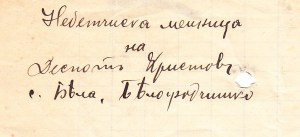 Небетчиска мешница
на
Деспотъ Христовъ
с. Бѣла, Бѣлоградчишко